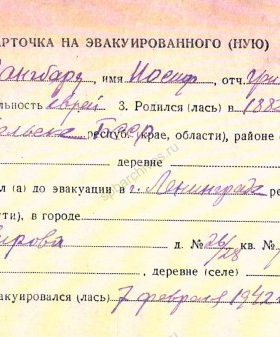 АРТОЧКА НА ЭВАКУИРОВАННОГО (НУЮ)
Лангбард, имя Иосиф, отч. Гри
льность еврей 3. Родился (лась) в 188
Бельске респуб. (крае, области), районе
БССР
деревне
л (а) до эвакуации в г. Ленинграде
ти), в городе
ирова д. № 26/28 кв. №
, деревне (селе)
акуировался (лась) 7 февраля 1942
spbarchives.ru